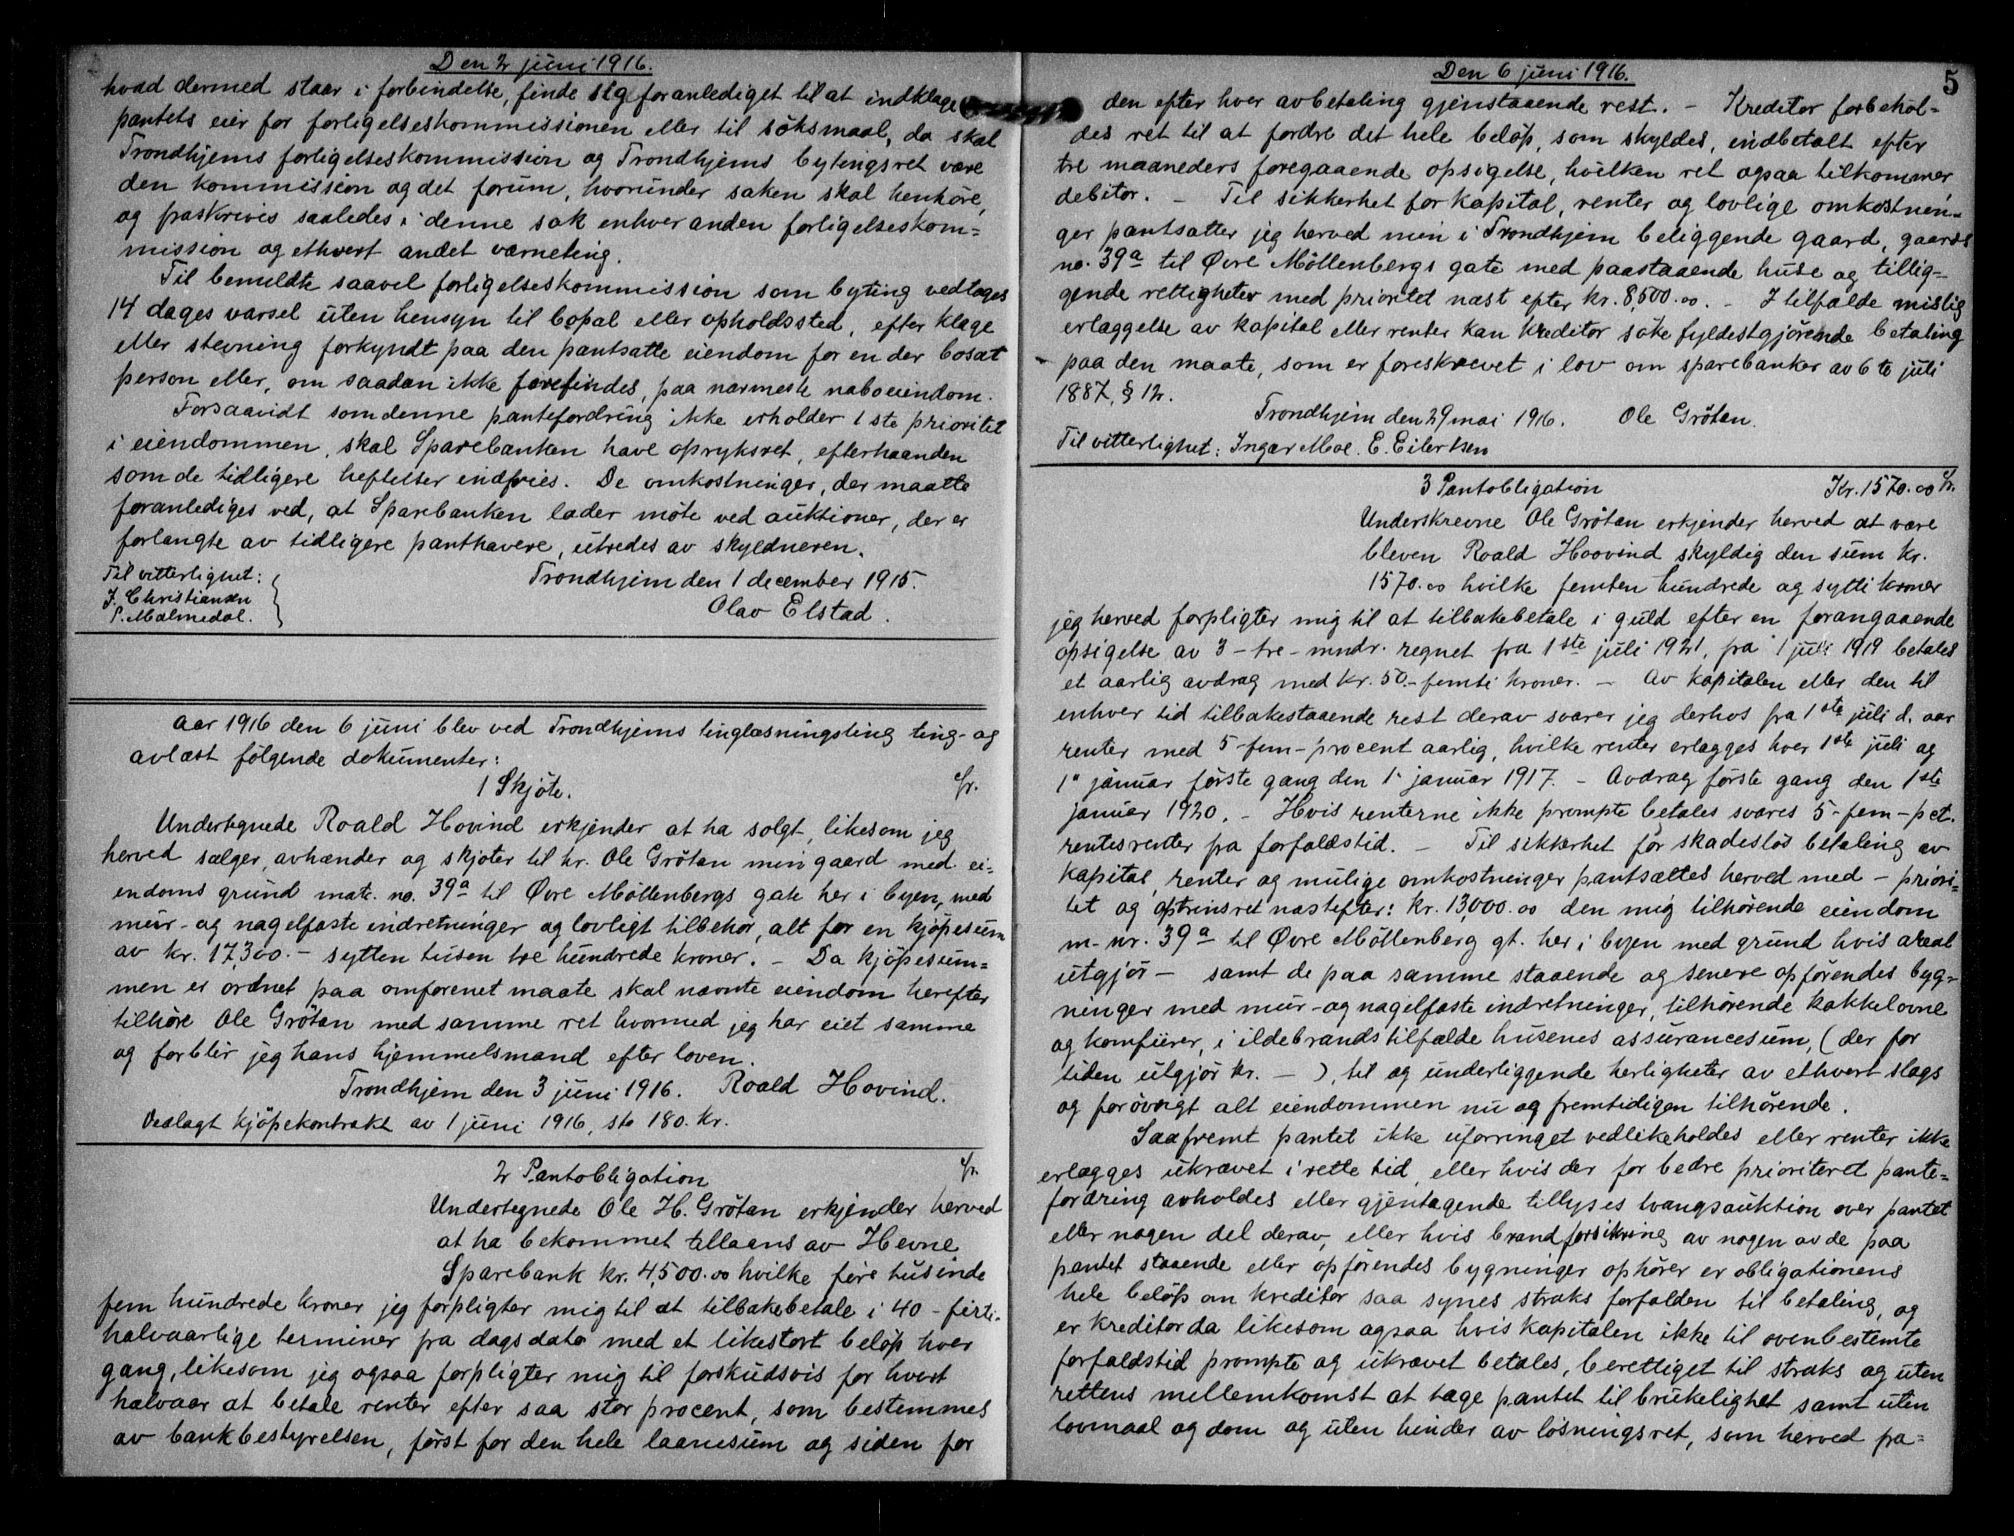 Den 2 juni 1916.
hvad dermed staar i forbindelse, finde sig foranlediget til at indklage
pantets eier for forligelseskommissionen eller til söksmaal, da skal
Trondhjems forligelseskommission og Trondhjems bytingsret være
den kommission og det forum, hvorunder saken skal henhöre,
og fraskrives saaledes i denne sak enhver anden forligelseskom=
mission og ethvert andet værneting.
Til bemeldte saavel forligelseskommission som byting vedtages
14 dages varsel uten hensyn til bopæl eller opholdssted, efter klage
eller stevning forkyndt paa den pantsatte eiendom for en der bosat
person eller, om saadan ikke forefindes, paa nærmeste naboeiendom.
Forsaavidt som denne pantefordring ikke erholder 1ste prioritet
i eiendommen, skal Sparebanken have opryksret, efterhaanden
som de tidligere heftelser indfries. De omkostninger, der maatte
foranlediges ved, at Sparebanken lader möte ved auktioner, der er
forlangte av tidligere panthavere, utredes av skyldneren.
Til vitterlighet: Trondhjem den 1 december 1915.
J. Christiansen Olav Elstad.
P. Malmedal.
Aar 1916 den 6 juni blev ved Trondhjems tinglæsningsting ting- og
avlæst fölgende dokumenter:
1 Skjöte.
Undertegnede Roald Hovind erkjender at ha solgt, likesom jeg
herved sælger, avhænder og skjöter til hr. Ole Grötan min gaard med ei=
endoms grund matr. no. 39a til Øvre Möllenbergs gate her i byen, med
mur- og nagelfaste indretninger og lovligt tilbehör, alt for en kjöpesum
av kr. 17,300.- sytten tusen tre hundrede kroner. - Da kjöpesum=
men er ordnet paa omforenet maate skal nævnte eiendom herefter
tilhöre Ole Grötan med samme ret hvormed jeg har eiet samme
og forblir jeg hans hjemmelsmand efter loven.
Trondhjem den 3 juni 1916. Roald Hovind.
Vedlagt kjöpekontrakt av 1 juni 1916, st. 180. kr.
2 Pantobligation
Undertegnede Ole H. Grötan erkjender herved
at ha bekommet tillaans av Hevne
Sparebank kr. 4,500.00 hvilke fire tusinde
fem hundrede kroner jeg forpligter mig til at tilbakebetale i 40 - firti.
halvaarlige terminer fra dags dato med et likestort belöp hver
gang, likesom jeg ogsaa forpligter mig til forskudsvis for hvert
halvaar at betale renter efter saa stor procent, som bestemmes
av bankbestyrelsen, först for den hele laanesum og siden for
Den 6 juni 1916.
5
den efter hver avbetaling gjenstaaende rest. - Kreditor forbehol=
des ret til at fordre det hele belöp, som skyldes, indbetalt efter
tre maaneders foregaaende opsigelse, hvilken ret ogsaa tilkommer
debitor. - Til sikkerhet for kapital, renter og lovlige omkostnin=
ger pantsætter jeg herved min i Trondhjem beliggende gaard, gaards
no. 39a til Øvre Möllenbergs gate med paastaaende huse og tillig=
gende rettigheter med prioritet næst efter kr. 8,500.00. - I tilfælde mislig
erlæggelse av kapital eller renter kan kreditor söke fyldestgjörende betaling
paa den maate, som er foreskrevet i lov om sparebanker av 6te juli
1887, § 12.
Trondhjem den 29 mai 1916. Ole Grötan.
Til vitterlighet: Ingar Moe. E. Eilertsen
3 Pantobligation Kr. 1570.00
Underskrevne Ole Grötan erkjender herved at være
bleven Roald Hoovind skyldig den sum kr.
1570.00 hvilke femten hundrede og sytti kroner
jeg herved forpligter mig til at tilbakebetale i guld efter en forangaaende
opsigelse av 3 - tre - mndr. regnet fra 1ste juli 1921, fra 1 juli 1919 betales
et aarlig avdrag med kr. 50.- femti kroner. - Av kapitalen eller den til
enhver tid tilbakestaaende rest derav svarer jeg derhos fra 1ste juli d. aar
renter med 5 - fem - procent aarlig, hvilke renter erlægges hver 1ste juli og
1" januar förste gang den 1" januar 1917. - Avdrag förste gang den 1ste
januar 1920. - Hvis renterne ikke prompte betales svares 5 - fem - pct.
rentesrenter fra forfaldstid. - Til sikkerhet for skadeslös betaling av
kapital, renter og mulige omkostninger pantsættes herved med - priori=
tet og optrinsret næstefter: kr. 13,000.00 den mig tilhörende eiendom
m- nr. 39a til Øvre Möllenberg gt. her i byen med grund hvis areal
utgjör - samt de paa samme staaende og senere opförendes byg=
ninger med mur- og nagelfaste indretninger, tilhörende kakkelovne
og komfürer, i ildebrandstilfælde husenes assurancesum, (der for
tiden utgjör kr. - ), til og underliggende herligheter av ethvert slags
og forövrigt alt eiendommen nu og fremtidigen tilhörende.
Saafremt pantet ikke uforringet vedlikeholdes eller renter ikke
erlægges ukrævet i rette tid, eller hvis der for bedre prioriteret pante=
fordring avholdes eller gjentagende tillyses tvangsauktion over pantet
eller nogen del derav, eller hvis brandforsikring av nogen av de paa
pantet staaende eller opförendes bygninger ophörer er obligationens
hele belöp om kreditor saa synes straks forfalden til betaling, og
er kreditor da likesom ogsaa hvis kapitalen ikke til ovenbestemte
forfaldstid prompte og ukrævet betales, berettiget til straks og uten
rettens mellemkomst at tage pantet til brukelighet samt uten
lovmaal og dom og uten hinder av lösningsret, som herved fra=